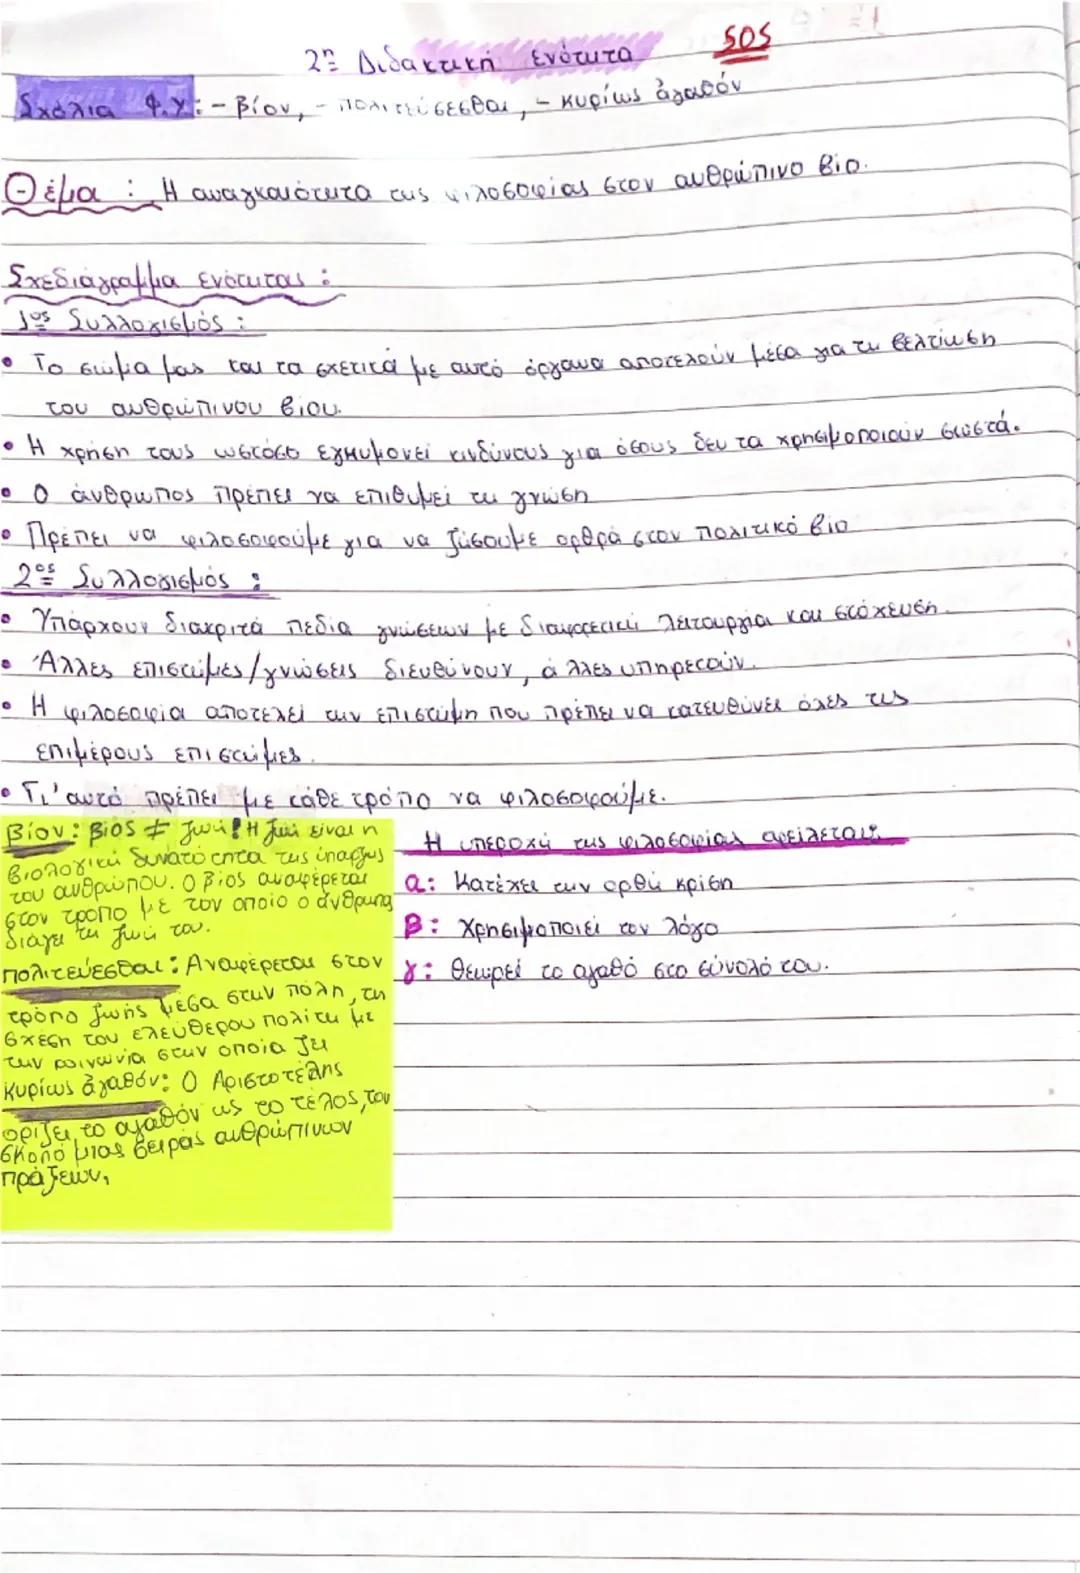 2η Διδακτική Ενότητα SOS
Σχόλια Φ.Υ: - βίον, - πολιτεύεσθαι, - κυρίως ἀγαθόν
Θέμα : Η αναγκαιότητα της φιλοσοφίας στον ανθρώπινο βίο.
Σχεδιάγραμμα ενότητας :
1ος Συλλογισμός :
• Το σώμα μας και τα σχετικά με αυτό όργανα αποτελούν μέσα για τη βελτίωση
του ανθρώπινου βίου.
• Η χρήση τους ωστόσο εγκυμονεί κινδύνους για όσους δεν τα χρησιμοποιούν σωστά.
• Ο άνθρωπος πρέπει να επιθυμεί τη γνώση
• Πρέπει να φιλοσοφούμε για να ζήσουμε ορθά στον πολιτικό βίο
2ος Συλλογισμός :
• Υπάρχουν διακριτά πεδία γνώσεων με διαφορετική λειτουργία και στόχευση.
• Άλλες επιστήμες/γνώσεις διευθύνουν, άλλες υπηρετούν.
• Η φιλοσοφία αποτελεί την επιστήμη που πρέπει να κατευθύνει όλες τις
επιμέρους επιστήμες.
• Γι' αυτό πρέπει με κάθε τρόπο να φιλοσοφούμε.
Βίον: βίος ≠ ζωή! Η ζωή είναι η
βιολογική δυνατότητα της ύπαρξης
του ανθρώπου. Ο βίος αναφέρεται
στον τρόπο με τον οποίο ο άνθρωπος
διάγει τη ζωή του.
πολιτεύεσθαι: Αναφέρεται στον
τρόπο ζωής μέσα στην πόλη, τη
σχέση του ελεύθερου πολίτη με
την κοινωνία στην οποία ζει
Κυρίως ἀγαθόν: Ο Αριστοτέλης
ορίζει το αγαθόν ως το τέλος, τον
σκοπό μιας σειράς ανθρώπινων
πράξεων,
Η υπεροχή της φιλοσοφίας οφείλεται:
α: Κατέχει την ορθή κρίση
β: Χρησιμοποιεί τον λόγο
γ: Θεωρεί το αγαθό στο σύνολό του.